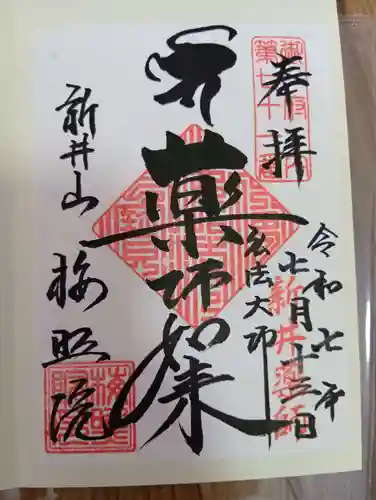 奉拝
御府内
第七十一番
令和七年
七月十三日
新井薬師
薬師如来
弘法大師
新井山
梅照院